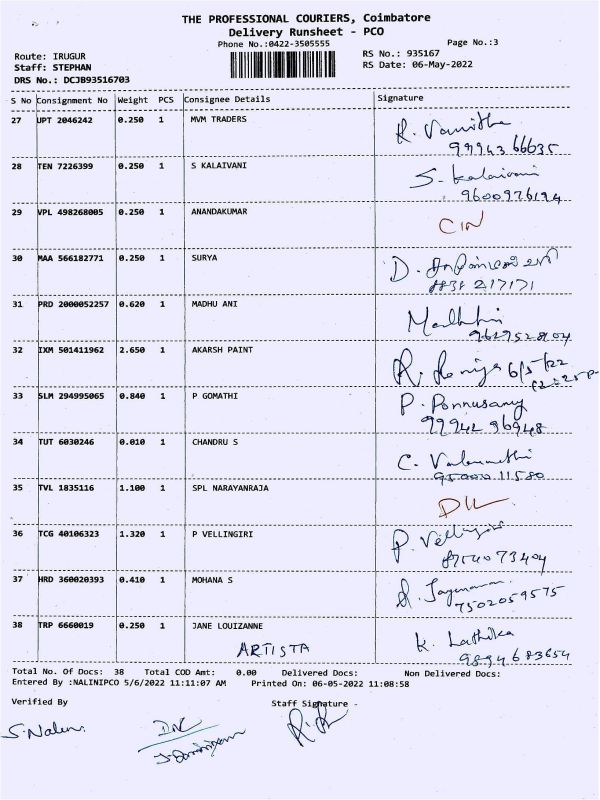 THE PROFESSIONAL COURIERS, Coimbatore
Delivery Runsheet - PCO
Phone No.:0422-3505555 Page No.:3
Route: IRUGUR RS No.: 935167
Staff: STEPHAN RS Date: 06-May-2022
DRS No.: DCJB93516703
S No Consignment No Weight PCS Consignee Details Signature
27 UPT 2046242 0.250 1 MVM TRADERS R. Vanitha
99943 66635
28 TEN 7226399 0.250 1 S KALAIVANI S. Kalaivani
9600976194
29 VPL 498268005 0.250 1 ANANDAKUMAR CIN
30 MAA 566182771 0.250 1 SURYA D.
217171
31 PRD 2000052257 0.620 1 MADHU ANI
9629528904
32 IXM 501411962 2.650 1 AKARSH PAINT R. 6/5/22
12:25 P
33 SLM 294995065 0.840 1 P GOMATHI P. Ponnusamy
99942 96948
34 TUT 6030246 0.010 1 CHANDRU S C.
95000 11580
35 TVL 1835116 1.100 1 SPL NARAYANRAJA
36 TCG 40106323 1.320 1 P VELLINGIRI P. Vellingiri
8754073404
37 HRD 360020393 0.410 1 MOHANA S
7502059575
38 TRP 6660019 0.250 1 JANE LOUIZANNE K. Lathika
ARTISTA 98946 83654
Total No. Of Docs: 38 Total COD Amt: 0.00 Delivered Docs: Non Delivered Docs:
Entered By :NALINIPCO 5/6/2022 11:11:07 AM Printed On: 06-05-2022 11:08:58
Verified By Staff Signature -
S. Nalini